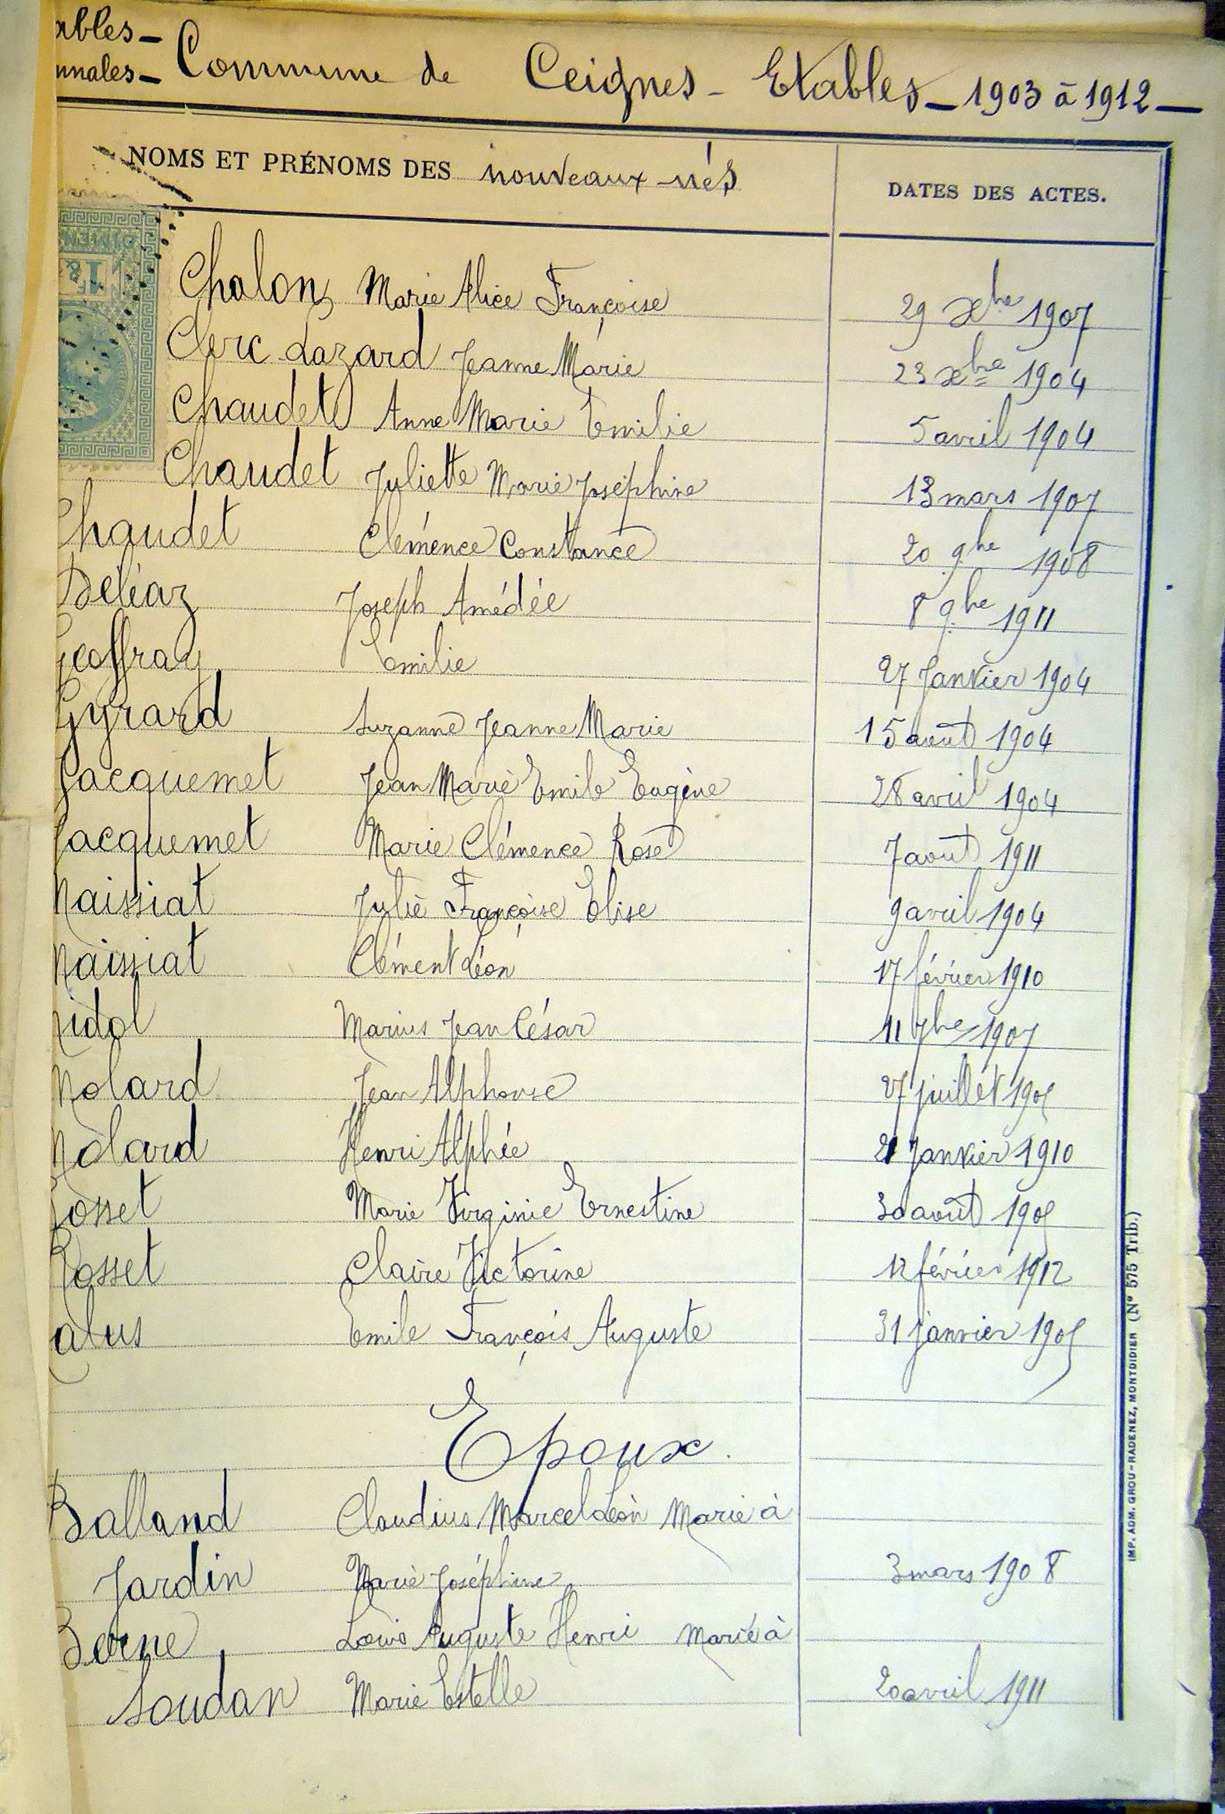 ables -
nnales - Commune de Ceignes - Etables - 1903 à 1912 -
NOMS ET PRÉNOMS DES nouveaux-nés DATES DES ACTES.
Chalon Marie Alice Françoise 29 xbre 1907
Clerc-Lazard Jeanne Marie 23 xbre 1904
Chaudet Anne Marie Emilie 5 avril 1904
Chaudet Juliette Marie Joséphine 13 mars 1907
Chaudet Clémence Constance 20 9bre 1908
Béléaz Joseph Amédée 8 9bre 1911
Geoffray Emilie 27 Janvier 1904
Gyrard Suzanne Jeanne Marie 15 août 1904
Jacquemet Jean Marie Emile Eugène 28 avril 1904
Jacquemet Marie Clémence Rose 7 août 1911
Maissiat Julie Françoise Elise 9 avril 1904
Maissiat Clément Léon 17 février 1910
idol Marius Jean César 11 7bre 1907
Molard Jean Alphonse 27 juillet 1905
Molard Henri Alphée 21 Janvier 1910
Rosset Marie Virginie Ernestine 30 août 1905
Rosset Claire Victorine 12 février 1912
alus Emile François Auguste 31 janvier 1905
Epoux.
Balland Claudius Marcel Léon Marié à
Jardin Marie Joséphine 3 mars 1908
Berne Louis Auguste Henri marié à
Soudan Marie Estelle 20 avril 1911
IMP. ADM. GROU-RADENEZ, MONTDIDIER (N° 575 Trib.)